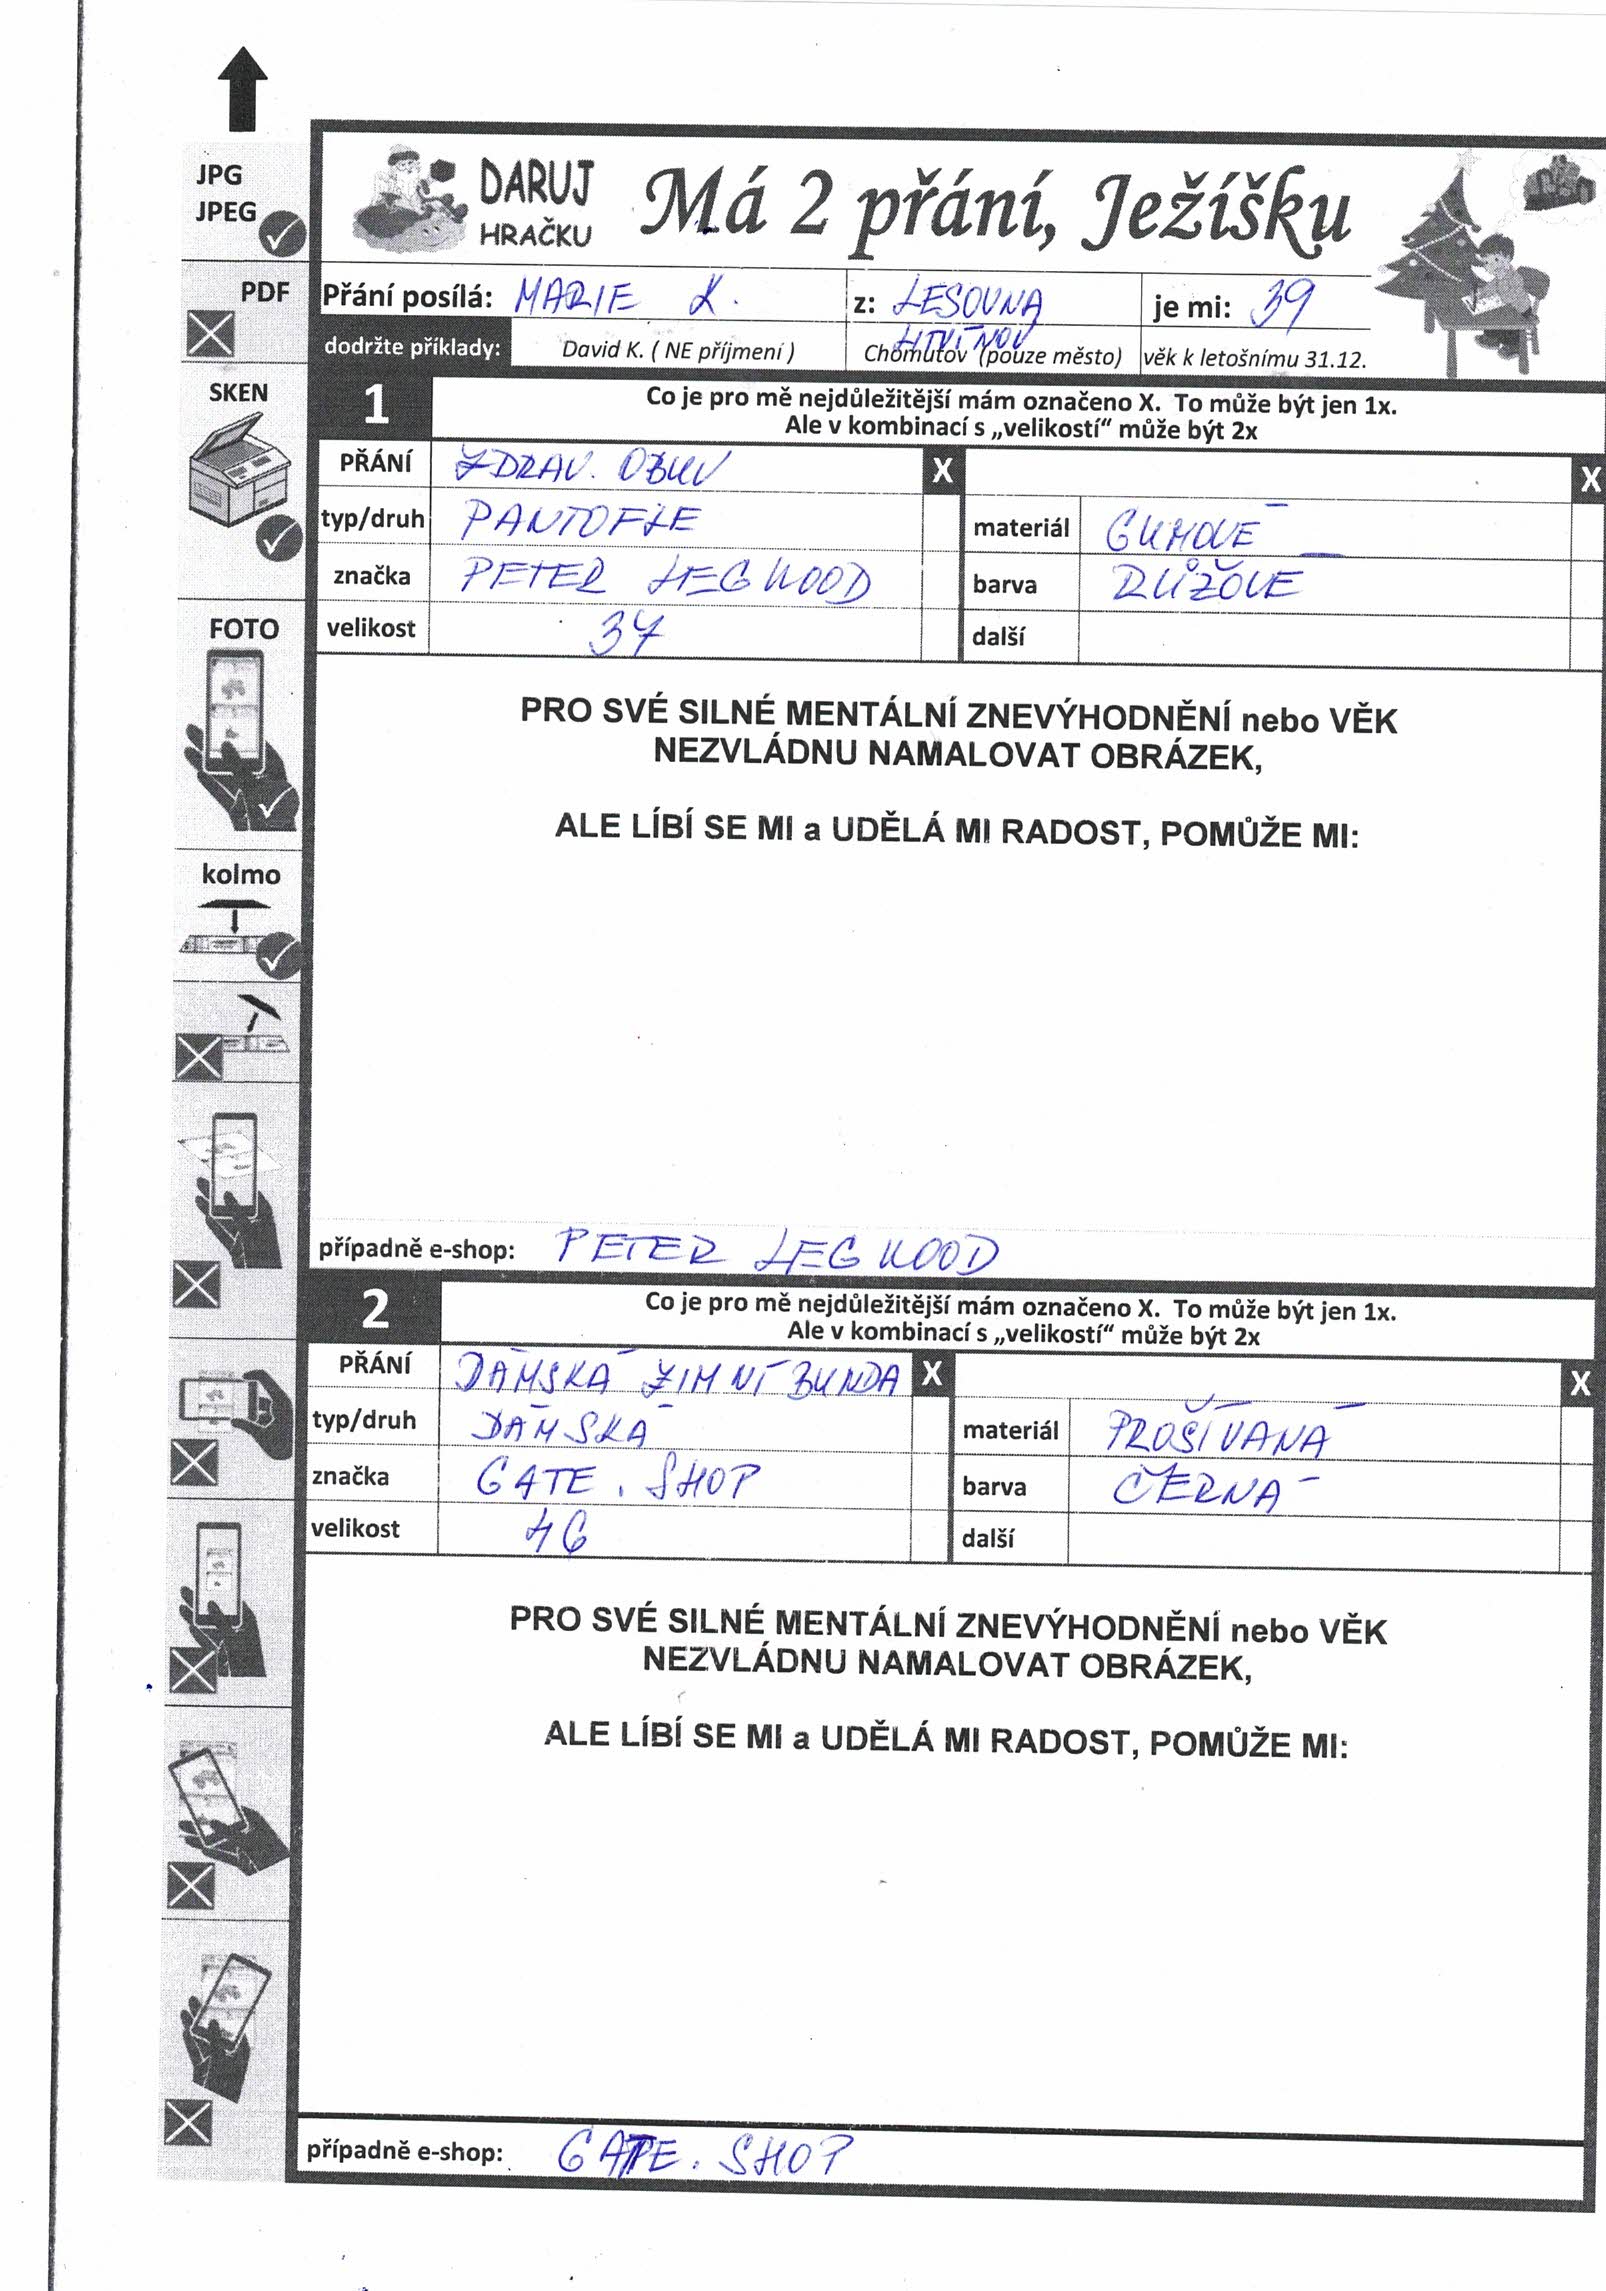 JPG
JPEG
PDF
SKEN
FOTO
kolmo
DARUJ
HRAČKU
Má 2 přání, Ježíšku
Přání posílá: MARIE K. z: LESOVNA je mi: 39
LITVÍNOV
dodržte příklady: David K. ( NE příjmení ) Chomutov (pouze město) věk k letošnímu 31.12.
1 Co je pro mě nejdůležitější mám označeno X. To může být jen 1x.
Ale v kombinací s „velikostí“ může být 2x
PŘÁNÍ ZDRAV. OBUV X X
typ/druh PANTOFLE materiál GUMOVÉ
značka PETER LEGWOOD barva RŮŽOVE
velikost 37 další
PRO SVÉ SILNÉ MENTÁLNÍ ZNEVÝHODNĚNÍ nebo VĚK
NEZVLÁDNU NAMALOVAT OBRÁZEK,
ALE LÍBÍ SE MI a UDĚLÁ MI RADOST, POMŮŽE MI:
případně e-shop: PETER LEGWOOD
2 Co je pro mě nejdůležitější mám označeno X. To může být jen 1x.
Ale v kombinací s „velikostí“ může být 2x
PŘÁNÍ DÁMSKÁ ZIMNÍ BUNDA X X
typ/druh DÁMSKÁ materiál PROŠÍVANÁ
značka GATE. SHOP barva ČERNÁ
velikost 46 další
PRO SVÉ SILNÉ MENTÁLNÍ ZNEVÝHODNĚNÍ nebo VĚK
NEZVLÁDNU NAMALOVAT OBRÁZEK,
ALE LÍBÍ SE MI a UDĚLÁ MI RADOST, POMŮŽE MI:
případně e-shop: GATE. SHOP